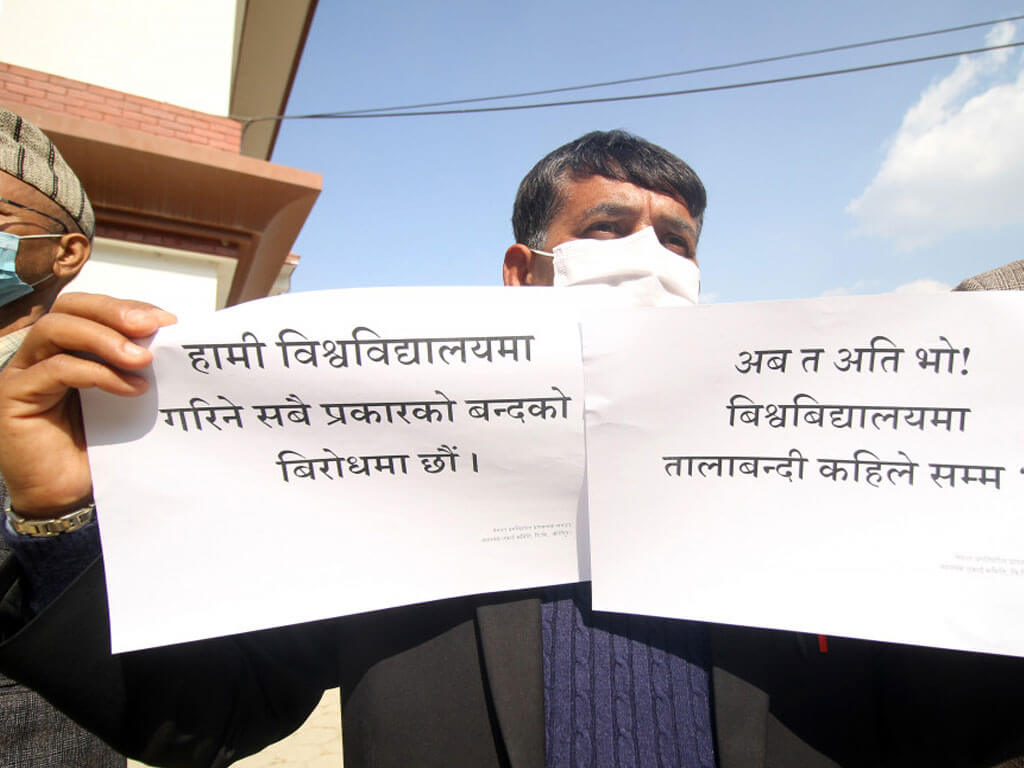 हामी विश्वविद्यालयमा
गरिने सबै प्रकारको बन्दको
बिरोधमा छौं ।
अब त अति भो!
बिश्वबिद्यालयमा
तालाबन्दी कहिले सम्म